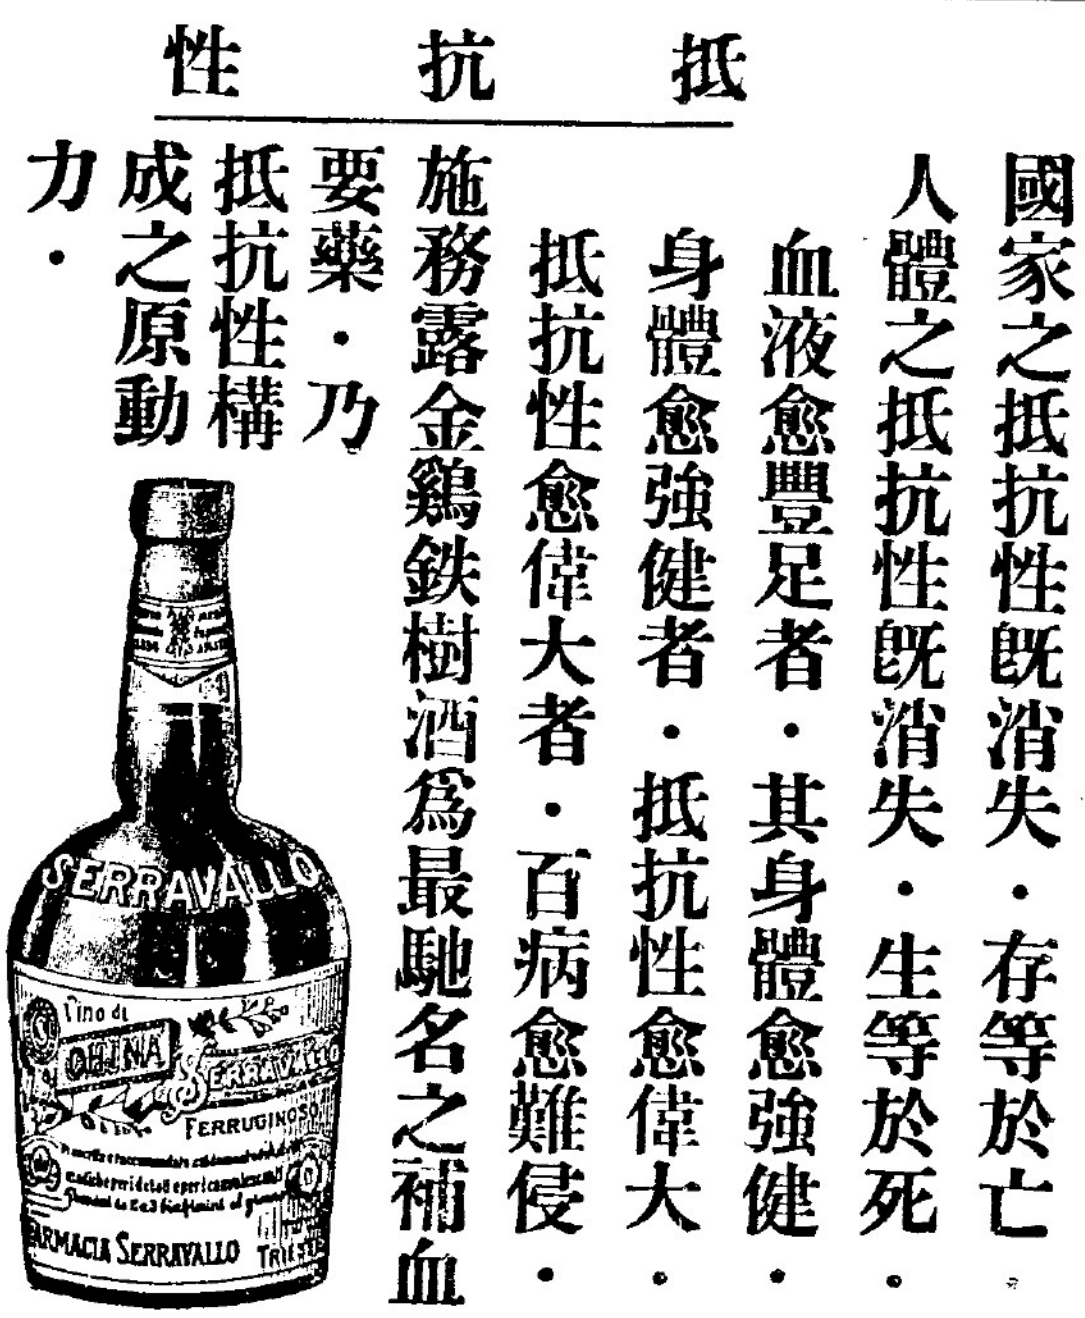 抵抗性
國家之抵抗性既消失・存等於亡・
人體之抵抗性既消失・生等於死・
血液愈豐足者・其身體愈強健・
身體愈強健者・抵抗性愈偉大・
抵抗性愈偉大者・百病愈難侵・
施務露金鷄鉄樹酒爲最馳名之補血
要藥・乃
抵抗性構
成之原動
力・
SERRAVALLO
Vino di
CHINA
SERRAVALLO
FERRUGINOSO
FARMACIA SERRAVALLO
TRIESTE